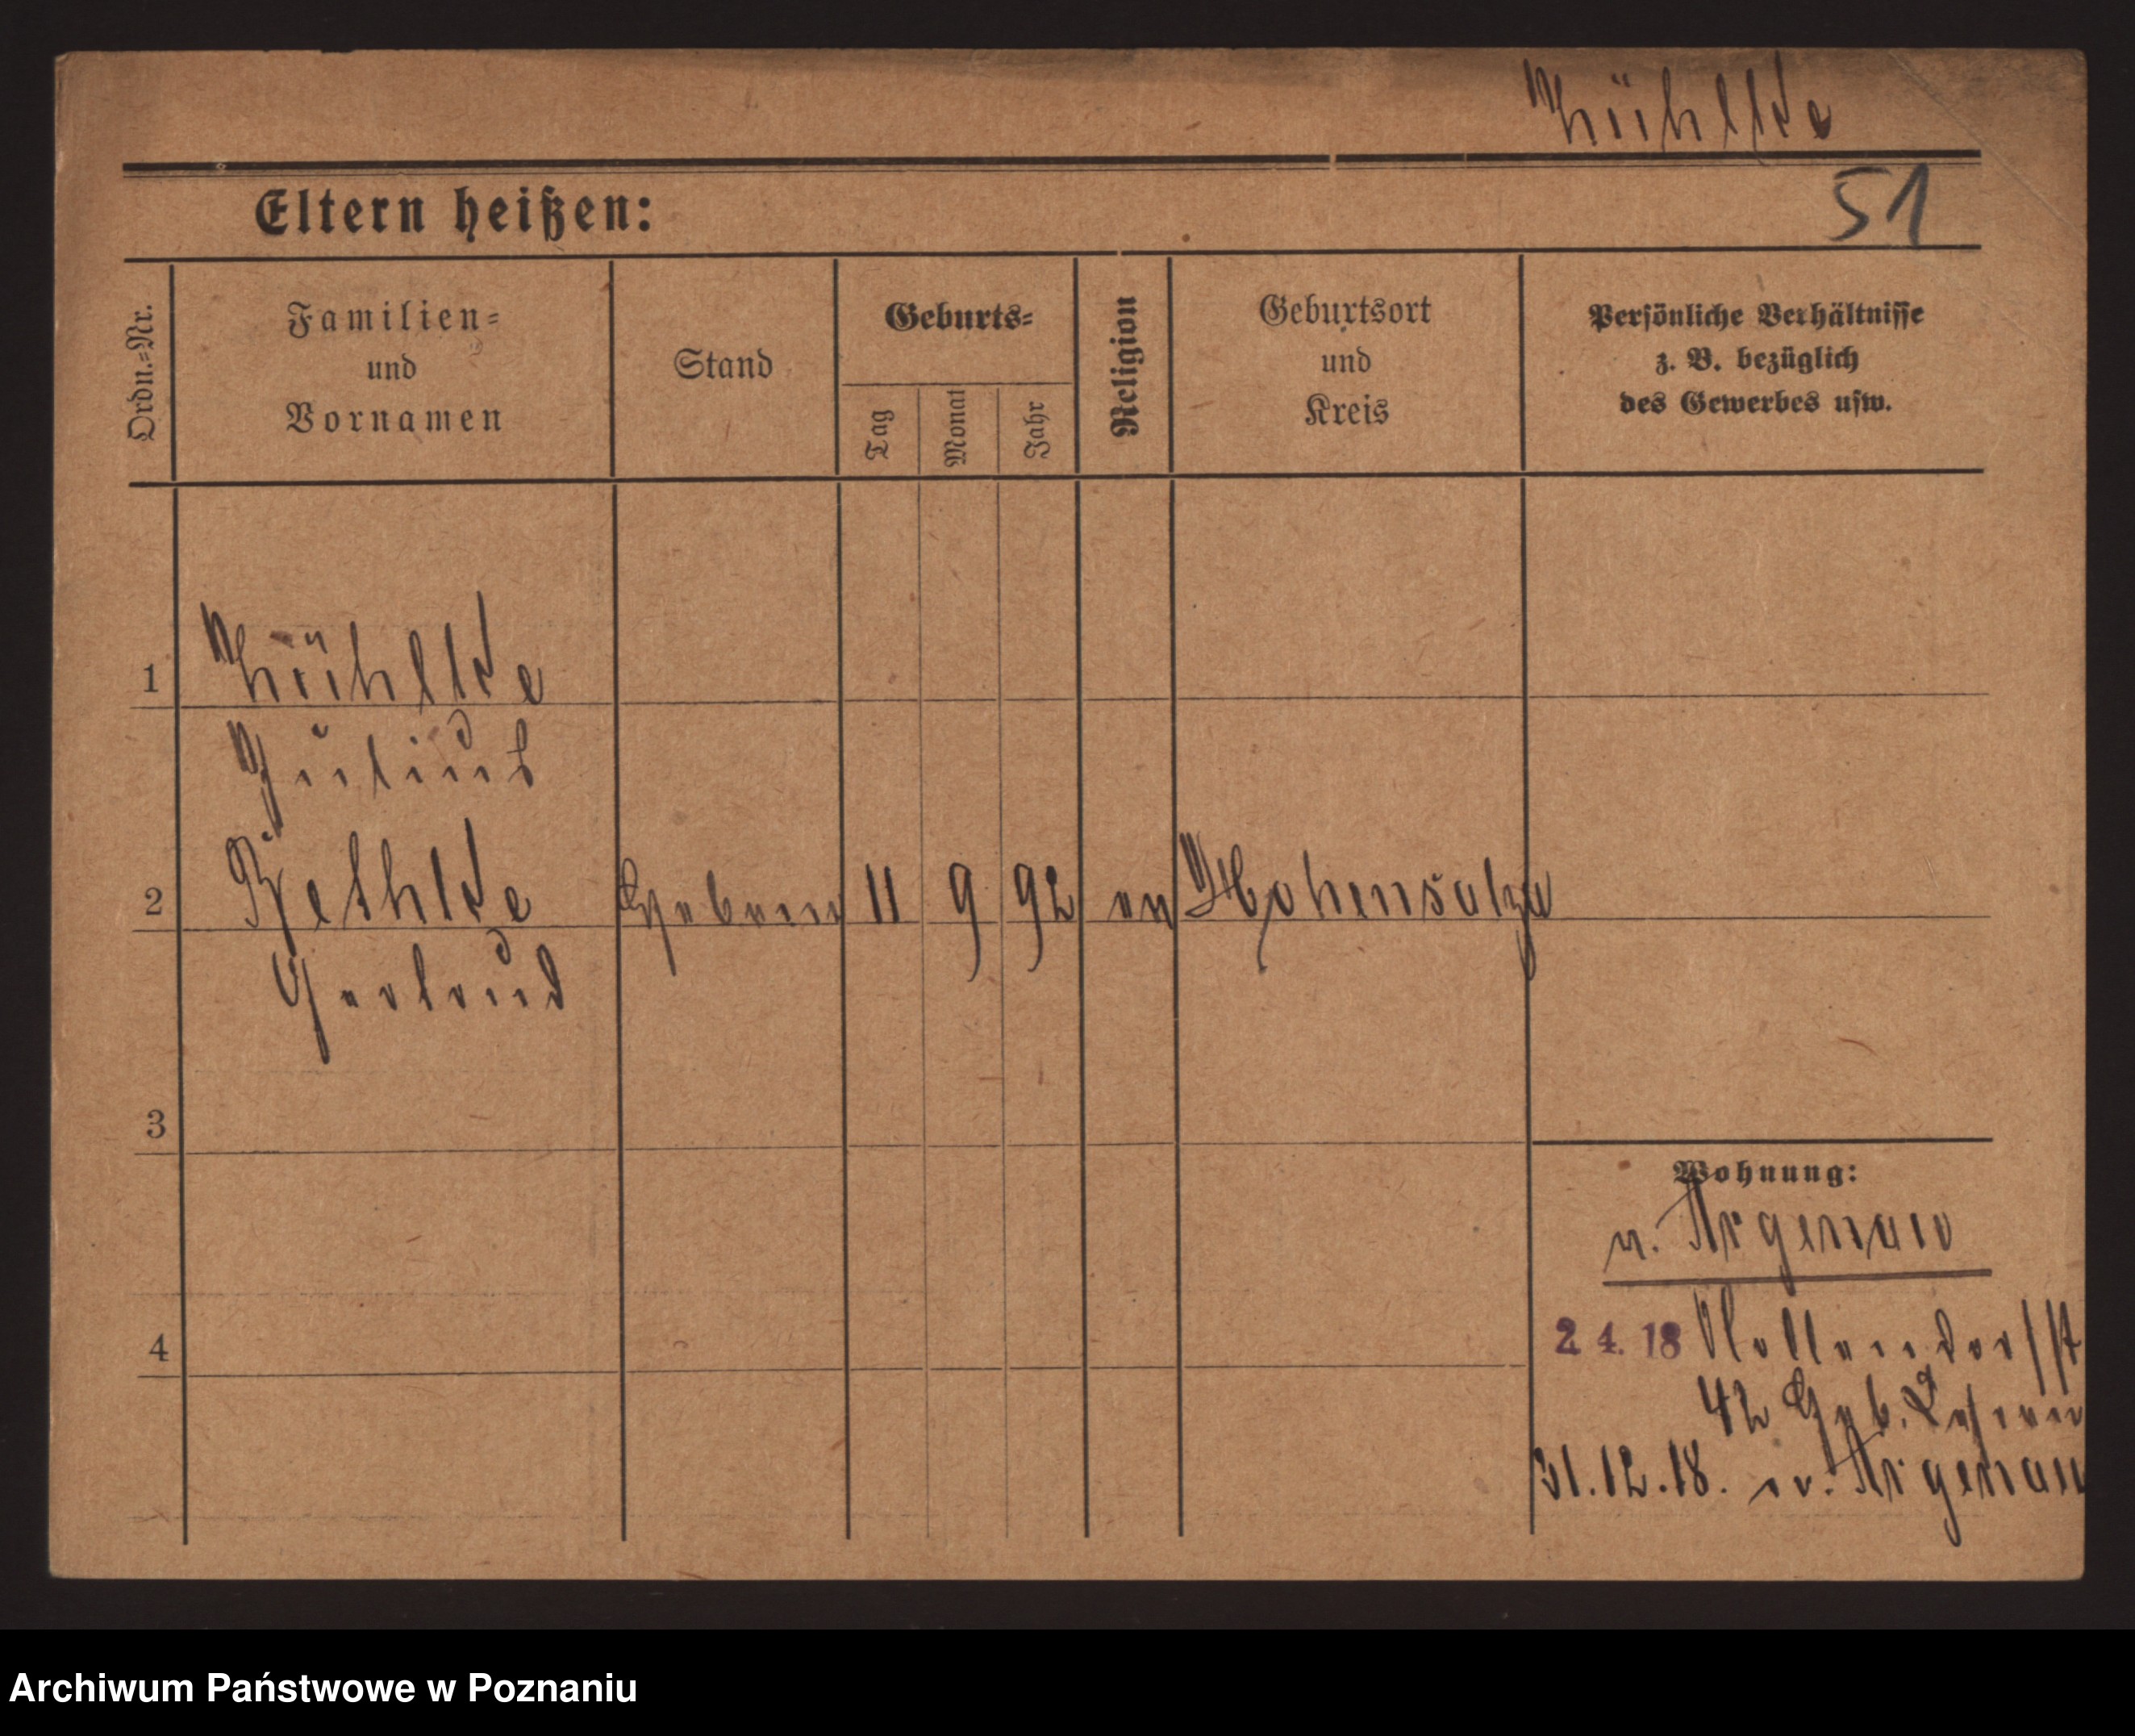 Kühlke
51
Eltern heißen:
Ordn.=Nr.
Familien=
und
Vornamen
Stand
Geburts=
Tag
Monat
Jahr
Religion
Geburtsort
und
Kreis
Persönliche Verhältnisse
z. B. bezüglich
des Gewerbes usw.
1
Kühlke
Julius
2
Geb. 11 9 92 ev Hohensalza
Gertrud
3
4
Wohnung:
n. Argenau
2 4. 18
42
31.12.18. n. Argenau
Archiwum Państwowe w Poznaniu